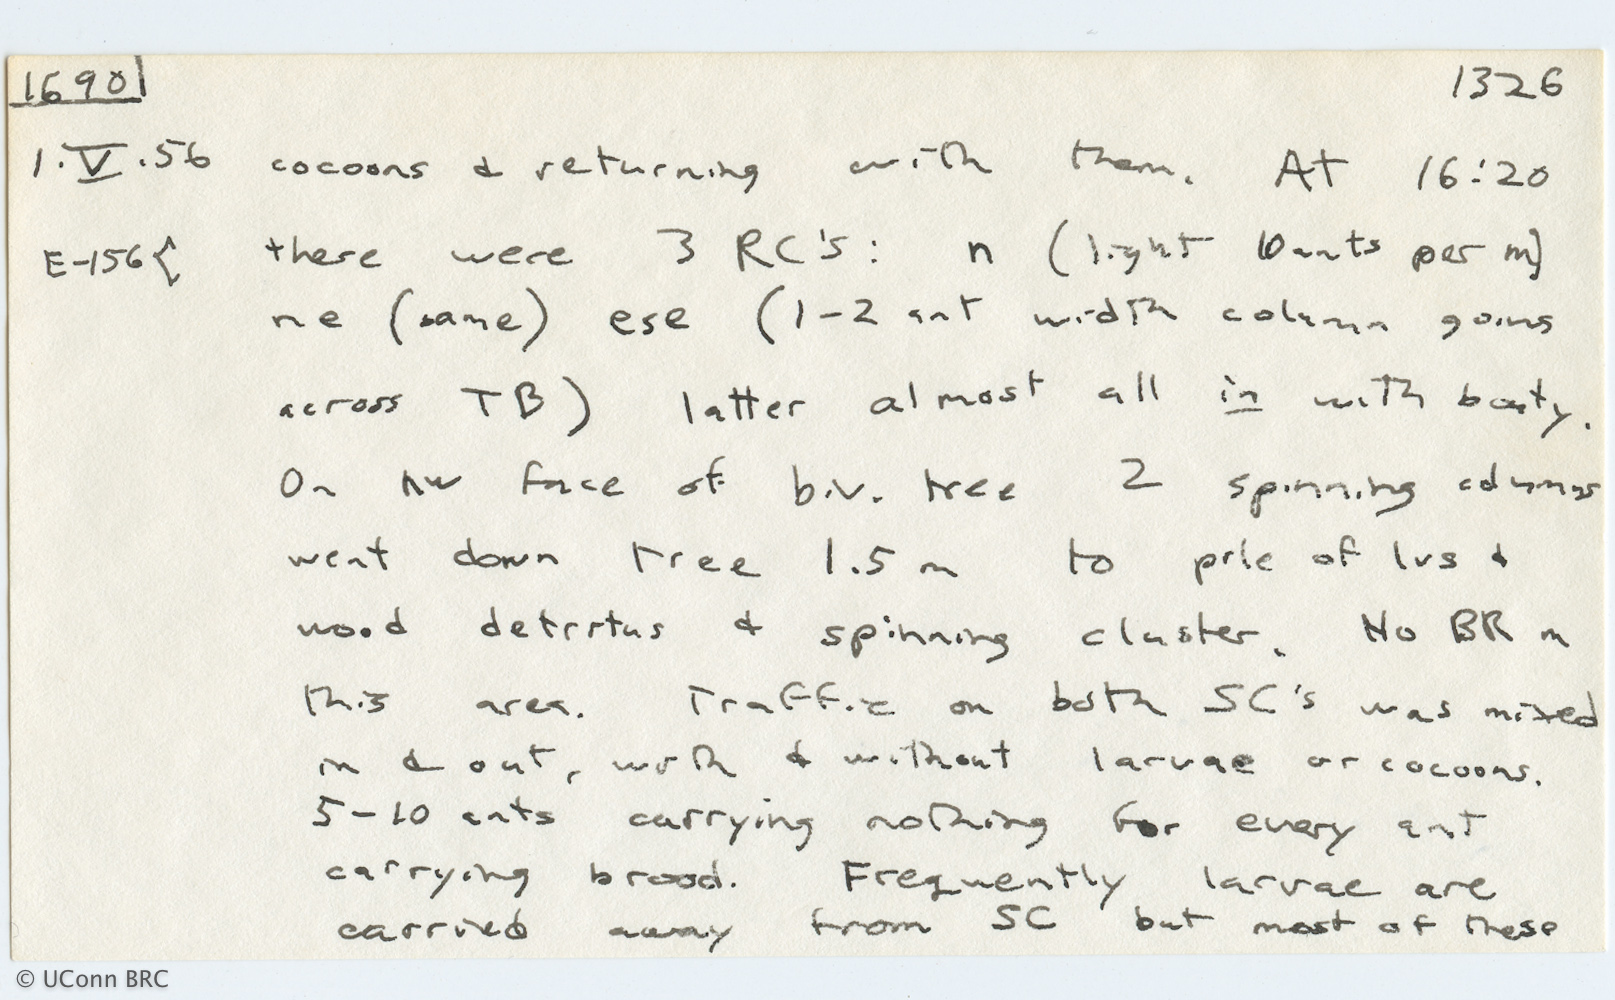 1690 1326
1.V.56 cocoons & returning with them. At 16:20
E-156{ there were 3 RC's: n (light 10 ants per m)
ne (same) ese (1-2 ant width column going
across TB) latter almost all in with booty.
On nw face of biv. tree 2 spinning columns
went down tree 1.5 m to pile of lvs &
wood detritus & spinning cluster. No BR in
this area. Traffic on both SC's was mixed
in & out, with & without larvae or cocoons.
5-10 ants carrying nothing for every ant
carrying brood. Frequently larvae are
carried away from SC but most of these
© UConn BRC